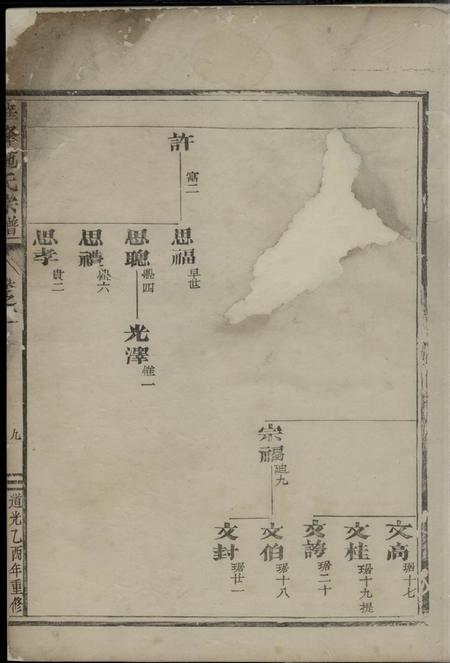 許 富二
思福 早世
思聰 四
思禮 六
思孝 貴二
光澤 惟一
宗福 廸九
文高 琚十七
文桂 琚十九
文 琚二十
文伯 琚十八
文封 琚廿一
氏宗譜
卷之
九
道光乙酉年重修